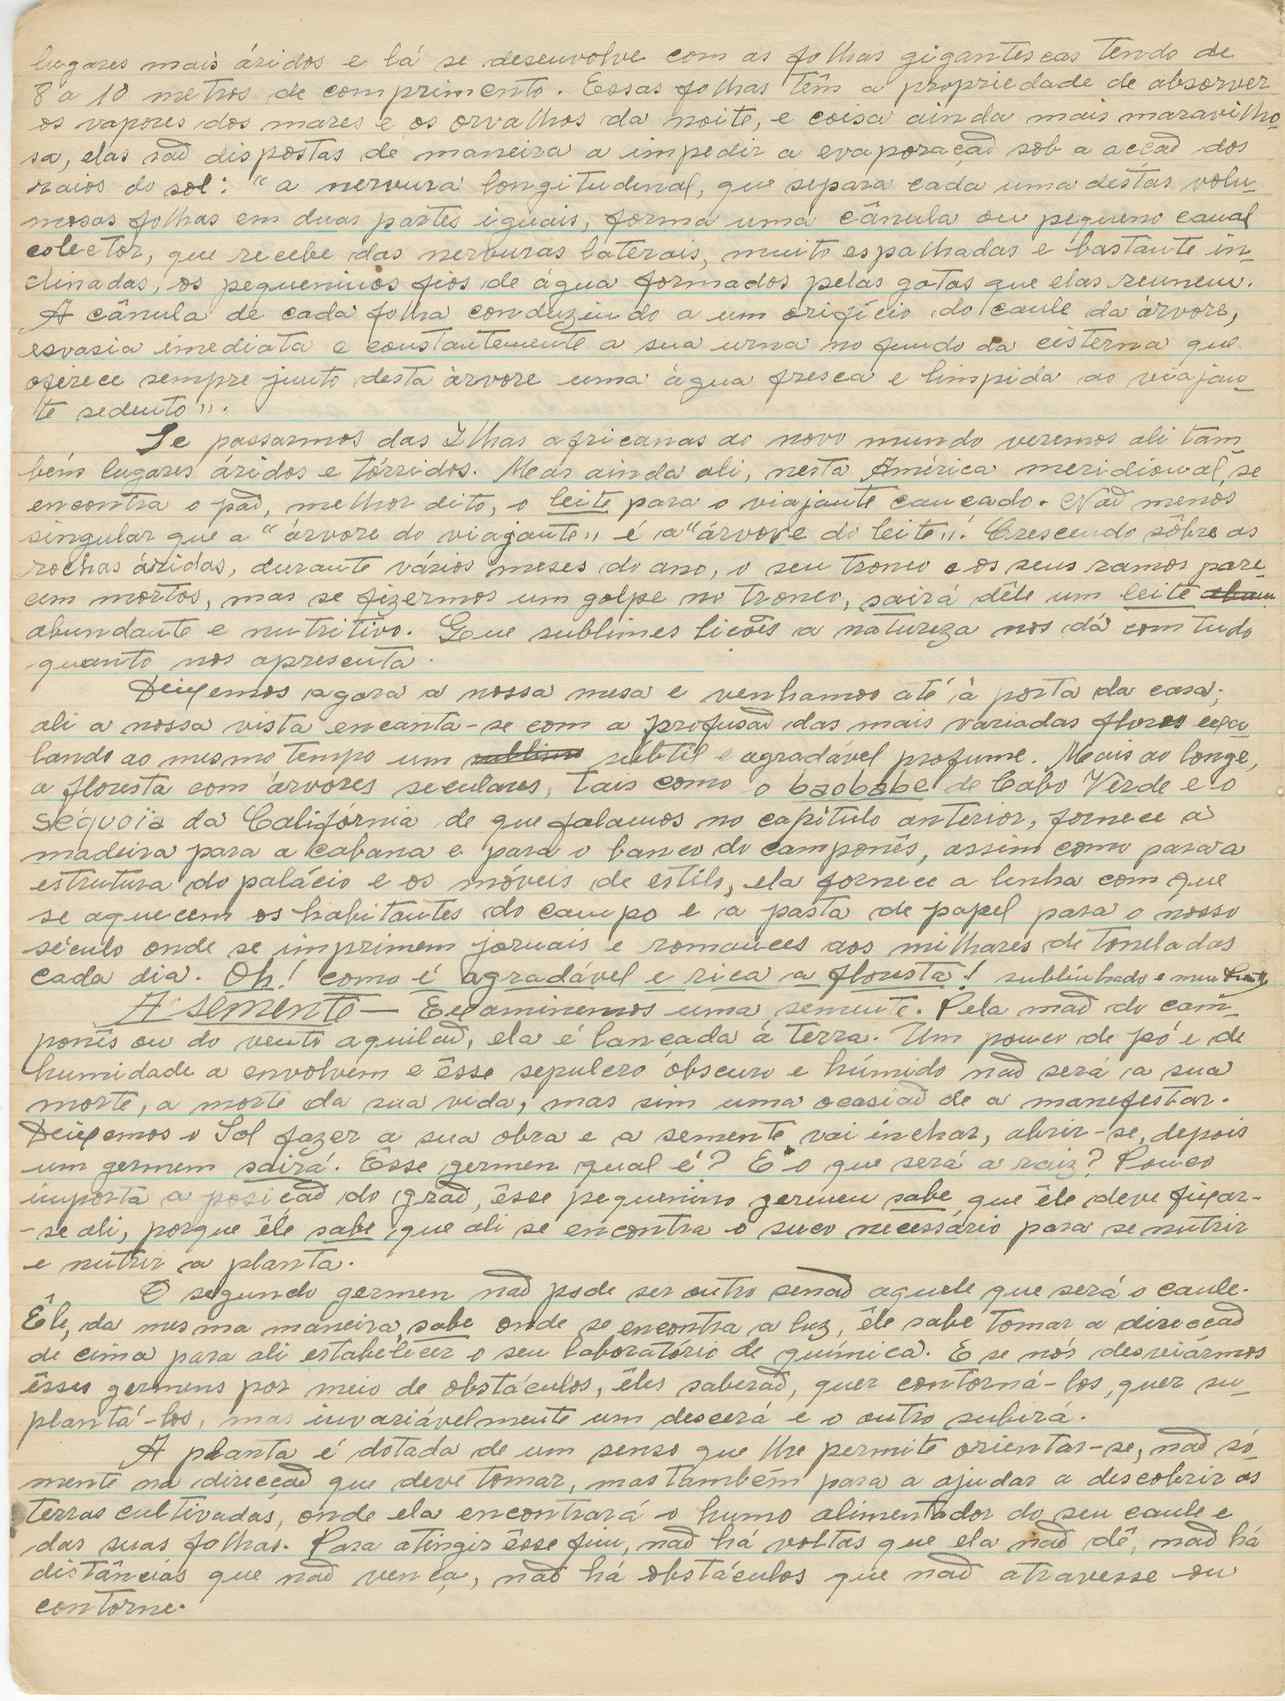 lugares mais áridos e lá se desenvolve com as folhas gigantescas tendo de
8 a 10 metros de comprimento. Essas folhas têm a propriedade de absorver
os vapores dos mares e os orvalhos da noite, e coisa ainda mais maravilho-
sa, elas são dispostas de maneira a impedir a evaporação sob a acção dos
raios do sol: "a nervura longitudinal, que separa cada uma destas volu-
mosas folhas em duas partes iguais, forma uma cânula ou pequeno canal
colector, que recebe das nervuras laterais, muito espalhadas e bastante in-
clinadas, os pequeninos fios de água formados pelas gotas que elas reunem.
A cânula de cada folha conduzindo a um orifício do caule da árvore,
esvasia imediata e constantemente a sua urna no fundo da cisterna que
oferece sempre junto desta árvore uma água fresca e limpida ao viajan-
te sedento".
Se passarmos das Ilhas africanas ao novo mundo veremos ali tam
bém lugares áridos e tórridos. Mas ainda ali, nesta América meridional, se
encontra o pão, melhor dito, o leite para o viajante cançado. Não menos
singular que a "árvore do viajante" é a "árvore do leite". Crescendo sôbre as
rochas áridas, durante vários meses do ano, o seu tronco e os seus ramos pare-
cem mortos, mas se fizermos um golpe no tronco, sairá dêle um leite
abundante e nutritivo. Que sublimes lições a natureza nos dá com tudo
quanto nos apresenta.
Deixemos agora a nossa mesa e venhamos até à porta da casa;
ali a nossa vista encanta-se com a profusão das mais variadas flores exa
lando ao mesmo tempo um sublime subtil e agradável profume. Mais ao longe,
a floresta com árvores seculares, tais como o baobabe de Cabo Verde e o
séquoia da Califórnia de que falamos no capítulo anterior, fornece a
madeira para a cabana e para o banco do camponês, assim como para a
estrutura do palácio e os móveis de estilo, ela fornece a lenha com que
se aquecem os habitantes do campo e a pasta de papel para o nosso
século onde se imprimem jornais e romances aos milhares de toneladas
cada dia. Oh! como é agradável e rica a floresta! sublinhado e meu
A semente — Examinemos uma semente. Pela mão do cam-
ponês ou do vento aquilão, ela é lançada à terra. Um pouco de pó e de
humidade a envolvem e êsse sepulcro obscuro e húmido não será a sua
morte, a morte da sua vida, mas sim uma ocasião de a manifestar.
Deixemos o Sol fazer a sua obra e a semente vai inchar, abrir-se, depois
um germem sairá. Êsse germen qual é? É o que será a raiz? Pouco
importa a posição do grão, êsse pequenino germen sabe que êle deve fixar-
-se ali, porque êle sabe que ali se encontra o suco necessário para se nutrir
e nutrir a planta.
O segundo germen não pode ser outro senão aquele que será o caule.
Êle, da mesma maneira, sabe onde se encontra a luz, êle sabe tomar a direcção
de cima para ali estabelecer o seu laboratório de química. E se nós desviármos
êsses germens por meio de obstáculos, êles saberão, quer contorná-los, quer su-
plantá-los, mas invariávelmente um descerá e o outro subirá.
A planta é dotada de um senso que lhe permite orientar-se, não só
mente na direcção que deve tomar, mas também para a ajudar a descobrir as
terras cultivadas, onde ela encontrará o humo alimentador do seu caule e
das suas folhas. Para atingir êsse fim, não há voltas que ela não dê, não há
distâncias que não vença, não há obstáculos que não atravesse ou
contorne.